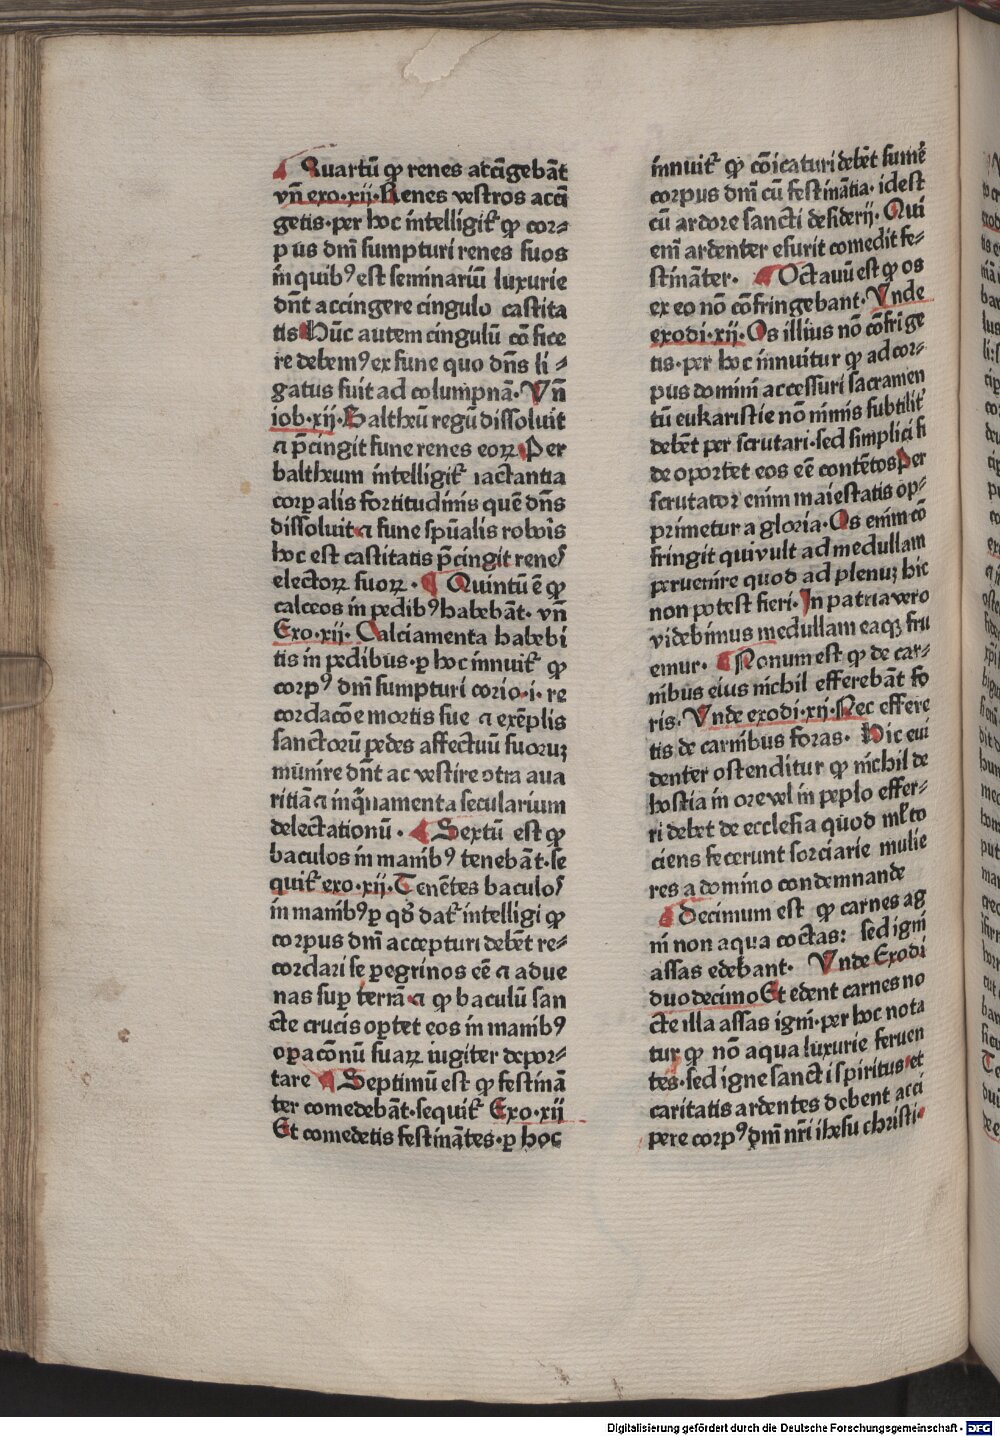 ¶ Quartū qɔ renes accīgebāt
vñ exo·xij·Renes vestros acci
getis·per hoc intelligit᷑ qɔ cor⸗
pus dn̄i sumpturi renes suos
in quibꝰ est seminariū luxurie
dn̄t accingere cingulo castita
tis Hūc autem cingulū cōfice
re debemꝰ ex fune quo dn̄s li⸗
gatus fuit ad columpnā·Vñ
iob·xij·Baltheū regū dissoluit
⁊ p̄cingit fune renes eoꝝ Per
baltheum intelligit᷑ iactantia
corꝑalis fortitudinis quē dn̄s
dissoluit ⁊ fune spūalis roboris
hoc est castitatis p̄cingit renes
electoꝝ suoꝝ· ¶ Quintū ē qɔ
calceos in pedibꝰ habebāt·vñ
Exo·xij·Calciamenta habebi
tis in pedibus·ꝑ hoc innuit᷑ qɔ
corpꝰ dn̄i sumpturi corio·i·re
cordacōe mortis sue ⁊ exēplis
sanctorū pedes affectuū suoruꝫ
munire dn̄t ac vestire ↄtra aua
ritiā ⁊ inq̄namenta secularium
delectationū· ¶ Sextū est qɔ
baculos in manibꝰ tenebāt·se
quit᷑ exo·xij·Tenētes baculos
in manibꝰ ꝑ qd̄ dat᷑ intelligi qɔ
corpus dn̄i accepturi debēt re⸗
cordari se ꝑegrinos eē ⁊ adue
nas suꝑ terrā ⁊ qɔ baculū san
cte crucis oꝑtet eos in manibꝰ
oꝑacōnū suaꝝ iugiter depor⸗
tare ¶ Septimū est qɔ festinā
ter comedebāt·sequit᷑ Exo·xij
Et comedetis festinātes·ꝑ hoc
innuit᷑ qɔ cōicaturi debēt sumē
corpus dn̄i cū festinātia·idest
cū ardore sancti desiderij·Qui
eni͞ ardenter esurit comedit fe⸗
stināter· ¶ Octauū est qɔ os
ex eo nō cōfringebant·Vnde
exodi·xij·Os illius nō cōfrige
tis·per hoc innuitur qɔ ad cor⸗
pus domini accessuri sacramen
tū eukaristie nō nimis subtilit᷑
debēt per scrutari·sed simplici fi
de oportet eos eē contētos Per
scrutator enim maiestatis op⸗
primetur a gloria·Os enim cō
fringit qui vult ad medullam
peruenire quod ad plenuꝫ hic
non potest fieri·In patria vero
videbimus medullam eaqꝫ fru
emur· ¶ Nonum est qɔ de car⸗
nibus eius nichil efferebāt fo
ris·Vnde exodi·xij·Nec effere
tis de carnibus foras· Hic eui
denter ostenditur qɔ nichil de
hostia in ore vel in peplo effer⸗
ri debet de ecclesia quod ml̄to
ciens fecerunt sorciarie mulie
res a domino condemnande
¶ Decimum est qɔ carnes ag
ni non aqua coctas: sed igni
assas edebant· Vnde Exodi
duodecimo Et edent carnes no
cte illa assas igni·per hoc nota
tur qɔ nō aqua luxurie feruen
tes·sed igne sancti spiritus et
caritatis ardentes debent acci
pere corpꝰ dn̄i nr̄i ihesu christi·
Digitalisierung gefördert durch die Deutsche Forschungsgemeinschaft · DFG